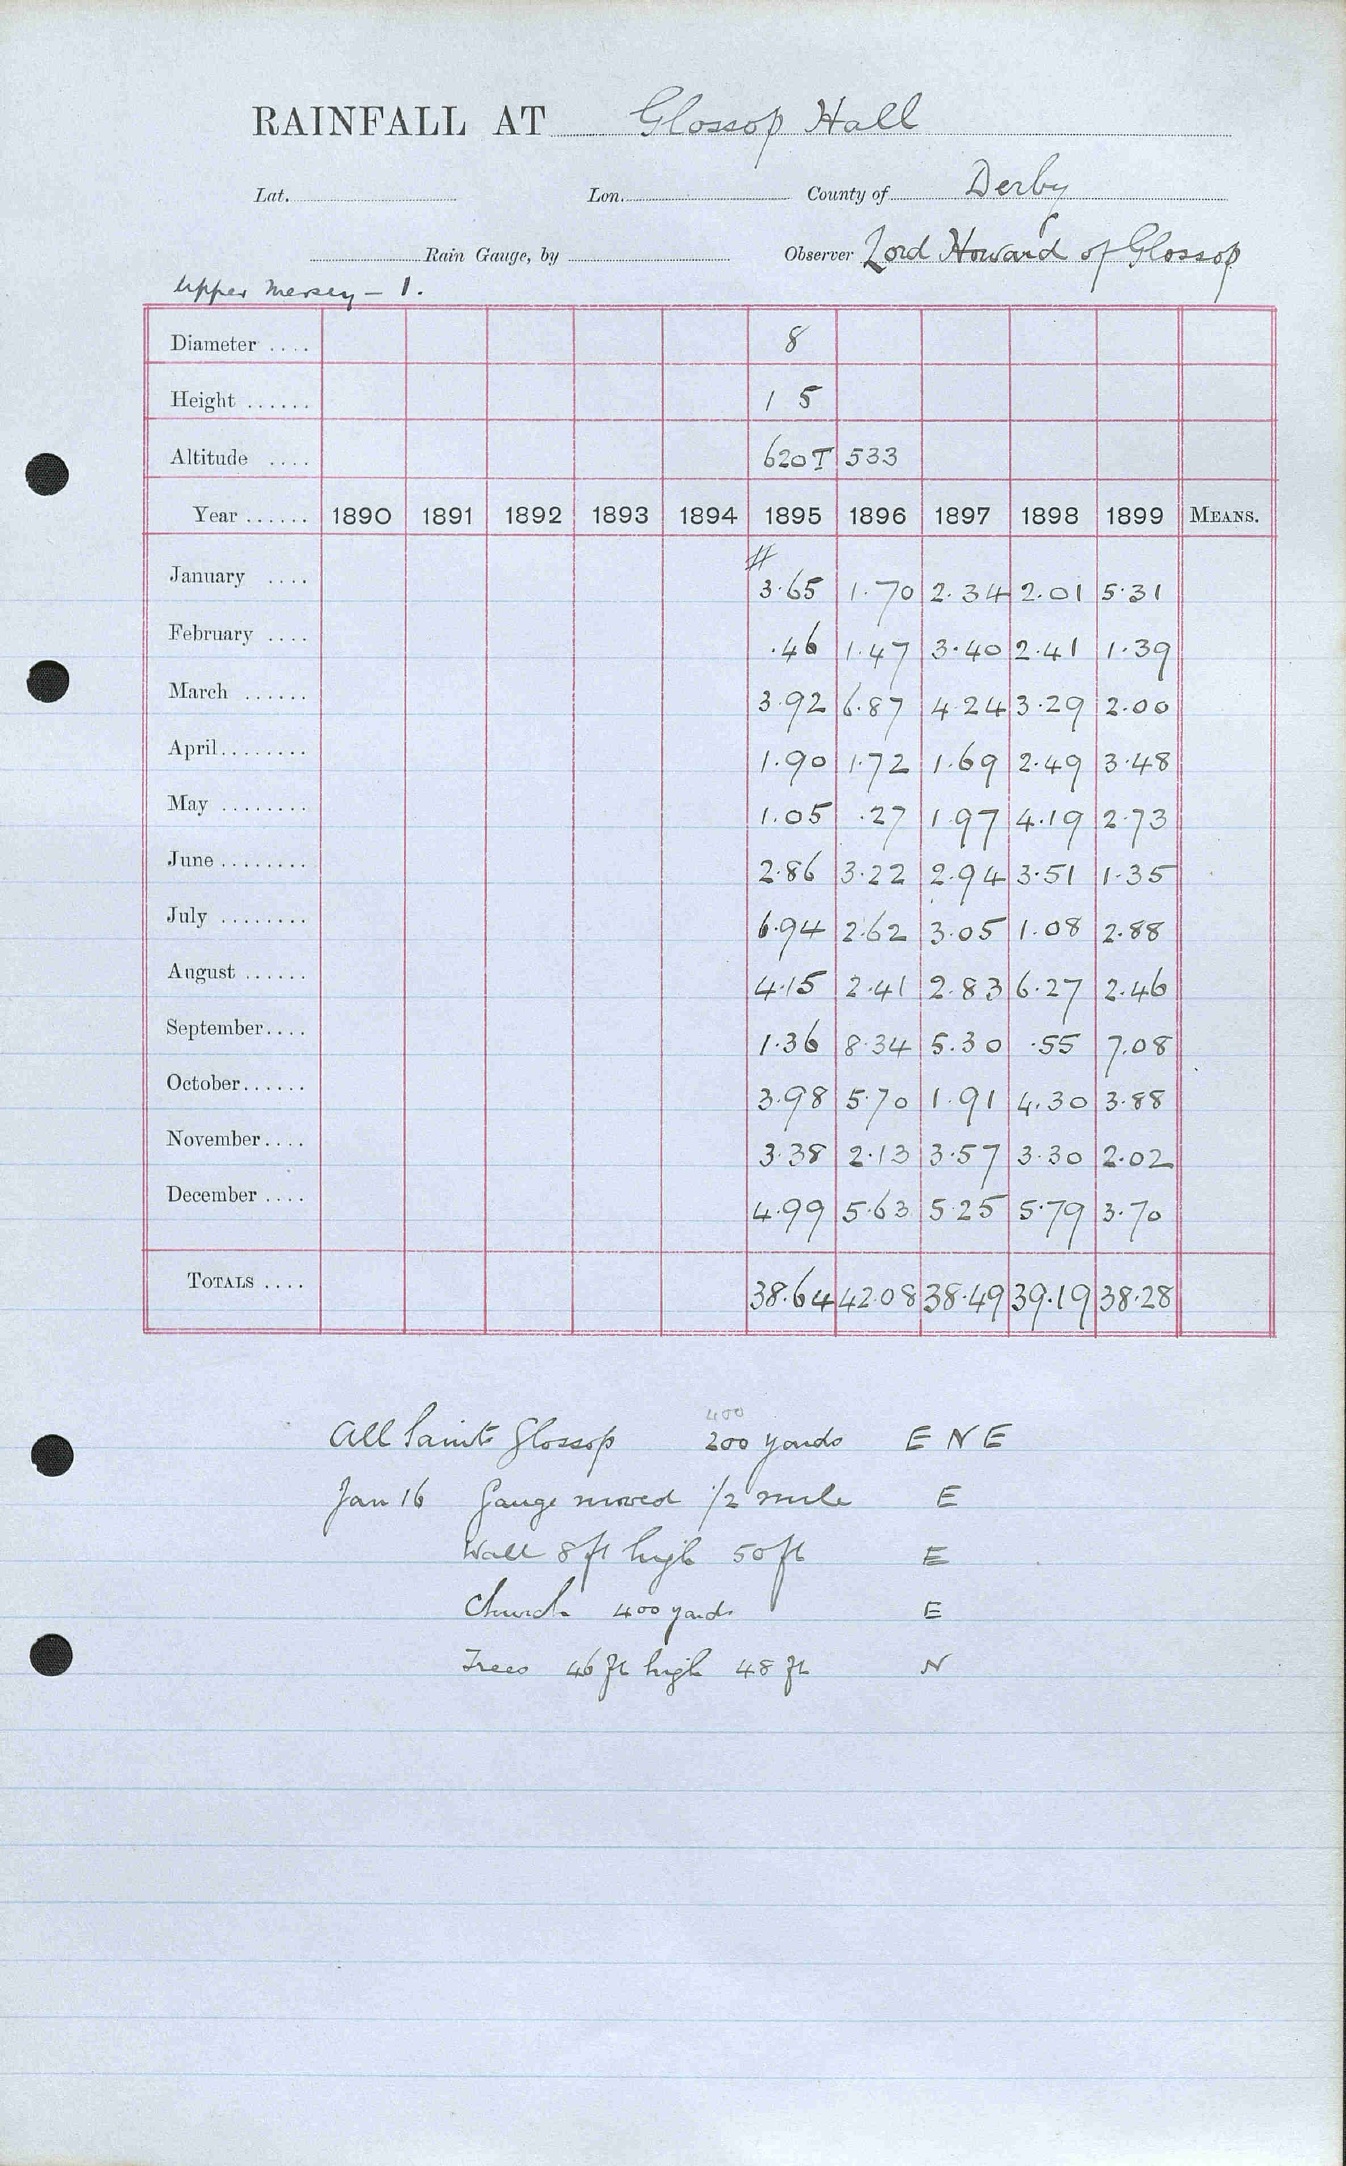 RAINFALL AT Glossop Hall
Lat. Lon. County of Derby
Rain Gauge, by Observer Lord Howard of Glossop
Upper Mersey - 1.
Diameter .... 8
Height ...... 1 5
Altitude .... 620T 533
Year ...... 1890 1891 1892 1893 1894 1895 1896 1897 1898 1899 MEANS.
#
January .... 3.65 1.70 2.34 2.01 5.31
February .... .46 1.47 3.40 2.41 1.39
March ...... 3.92 6.87 4.24 3.29 2.00
April........ 1.90 1.72 1.69 2.49 3.48
May ........ 1.05 .27 1.97 4.19 2.73
June ........ 2.86 3.22 2.94 3.51 1.35
July ........ 6.94 2.62 3.05 1.08 2.88
August ...... 4.15 2.41 2.83 6.27 2.46
September.... 1.36 8.34 5.30 .55 7.08
October...... 3.98 5.70 1.91 4.30 3.88
November.... 3.38 2.13 3.57 3.30 2.02
December .... 4.99 5.63 5.25 5.79 3.70
TOTALS .... 38.64 42.08 38.49 39.19 38.28
400
All Saints Glossop 200 yards E N E
Jan 16 Gauge moved 1/2 mile E
Wall 8 ft high 50 ft E
Church 400 yards E
Trees 46 ft high 48 ft N